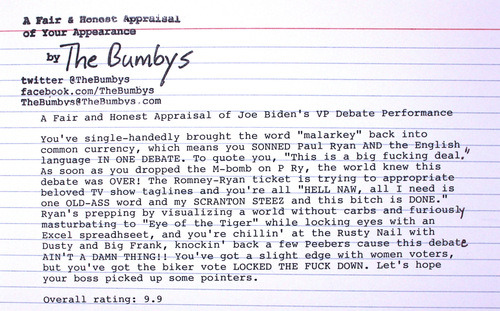 A Fair & Honest Appraisal
of Your Appearance
by The Bumbys
twitter @TheBumbys
facebook.com/TheBumbys
TheBumbys@TheBumbys.com
A Fair and Honest Appraisal of Joe Biden's VP Debate Performance
You've single-handedly brought the word "malarkey" back into
common currency, which means you SONNED Paul Ryan AND the English
language IN ONE DEBATE. To quote you, "This is a big fucking deal."
As soon as you dropped the M-bomb on P Ry, the world knew this
debate was OVER! The Romney-Ryan ticket is trying to appropriate
beloved TV show taglines and you're all "HELL NAW, all I need is
one OLD-ASS word and my SCRANTON STEEZ and this bitch is DONE."
Ryan's prepping by visualizing a world without carbs and furiously
masturbating to "Eye of the Tiger" while locking eyes with an
Excel spreadhseet, and you're chillin' at the Rusty Nail with
Dusty and Big Frank, knockin' back a few Peebers cause this debate
AIN'T A DAMN THING!! You've got a slight edge with women voters,
but you've got the biker vote LOCKED THE FUCK DOWN. Let's hope
your boss picked up some pointers.
Overall rating: 9.9